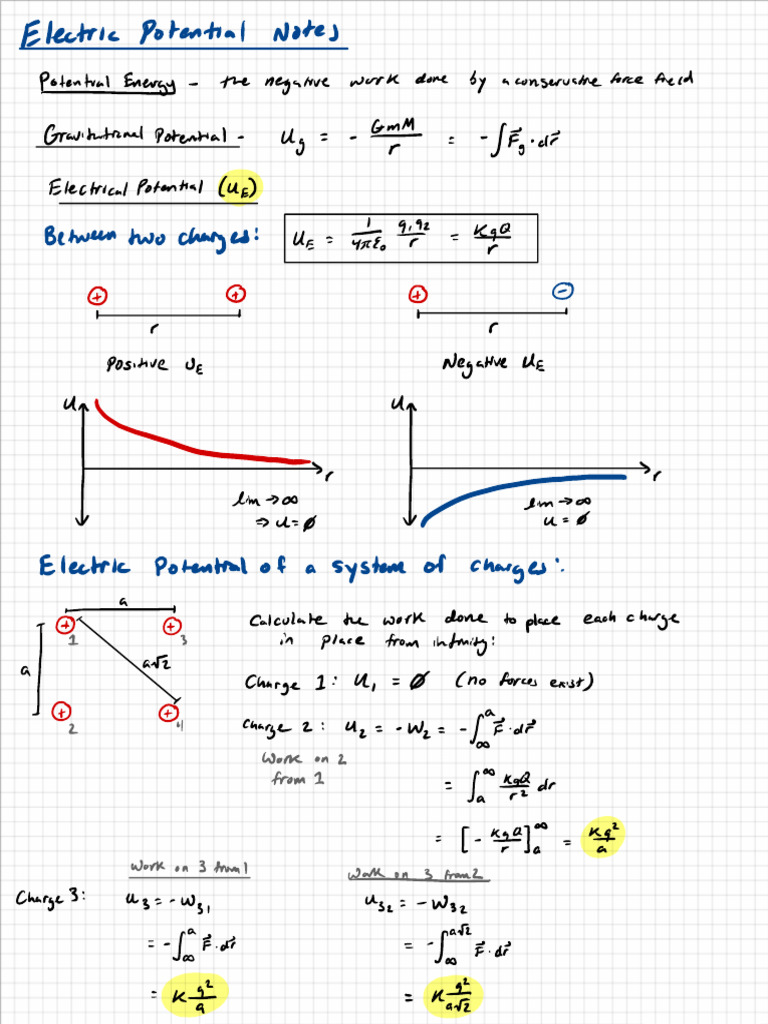 Electric Potential Notes
Potential Energy - the negative work done by a conservative force field
Gravitational Potential - U_g = - GmM/r = -∫F⃗_g · dr⃗
Electrical Potential (U_E)
Between two charges: U_E = 1/4πε₀ q₁q₂/r = KqQ/r
+ + + -
r r
Positive U_E Negative U_E
U U
r r
lim → ∞ lim → ∞
⇒ U = ∅ U = ∅
Electric Potential of a system of charges:
a
+ + Calculate the work done to place each charge
1 3 in place from infinity:
a a√2
Charge 1: U₁ = ∅ (no forces exist)
+ +
2 4
Charge 2: U₂ = -W₂ = -∫_∞^a F⃗ · dr⃗
Work on 2
from 1
= ∫_a^∞ KqQ/r² dr
= [- KqQ/r]_a^∞ = Kq²/a
Work on 3 from 1 Work on 3 from 2
Charge 3: U₃ = -W₃₁ U₃₂ = -W₃₂
= -∫_∞^a F⃗ · dr⃗ = -∫_∞^a√2 F⃗ · dr⃗
= K q²/a = K q²/a√2